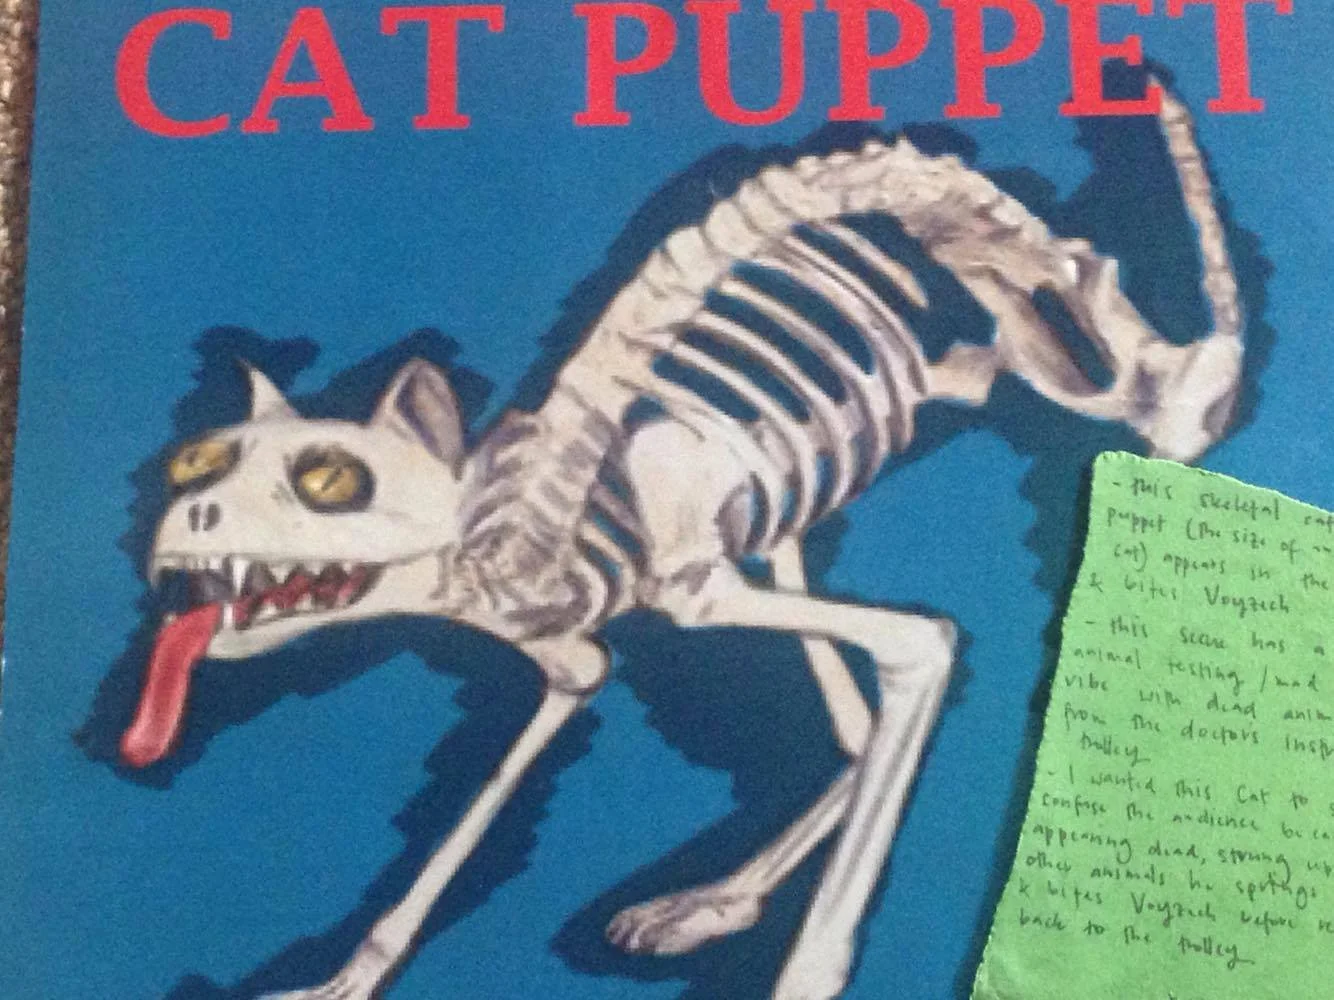 CAT PUPPET
- this skeletal cat
puppet (the size of
cat) appears in the
& bites Voyzech
- this scene has a
animal testing / mad
vibe with dead anim
from the doctors instr
trolley
- I wanted this Cat to
confuse the audience beca
appearing dead, strung up
other animals he springs
& bites Voyzech before re
back to the trolley